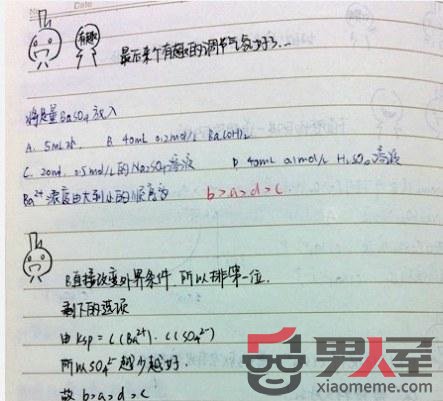 Date
有趣
最后来个有趣的调节气氛好了...
将足量BaSO4放入
A. 5mL水 B 40mL 0.2mol/L Ba(OH)2
C. 20ml 0.5mol/L的Na2SO4溶液 D 40mL 0.1mol/L H2SO4溶液
Ba2+浓度由大到小的顺序为 b>a>d>c
B直接改变外界条件,所以排第一位.
剩下的选项
由Ksp=c(Ba2+)·c(SO42-)
所以SO42-越少越好.
故 b>a>d>c
男人窝
xiaomeme.com